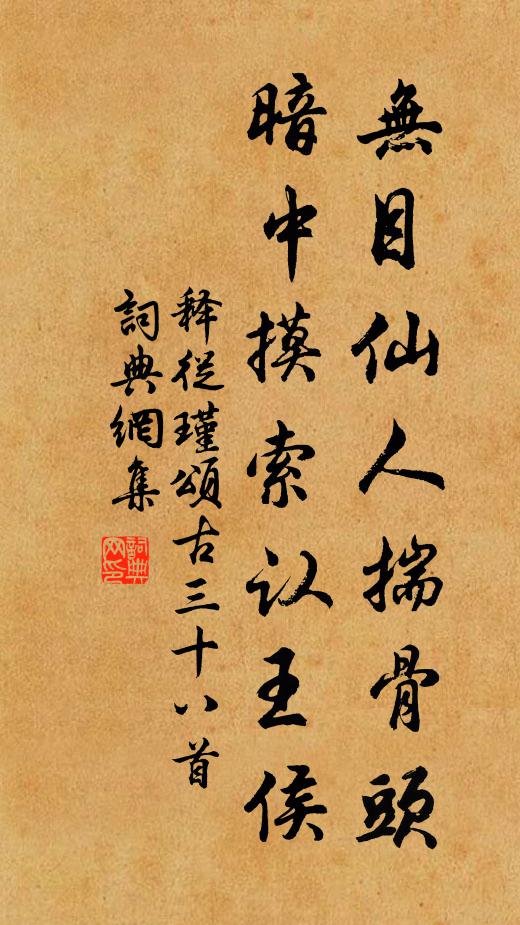 無目仙人揣骨頭
暗中摸索认王侯
释從瑾頌古三十八首
詞典網集
詞典網印